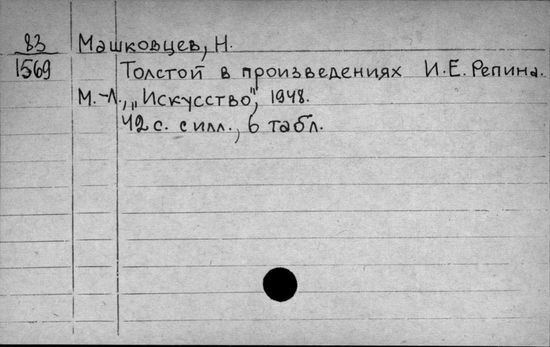 83 Машковцев, Н.
1569 Толстой в произведениях И.Е. Репина.
М.-Л., „Искусство", 1948.
42 с. с илл., 6 табл.